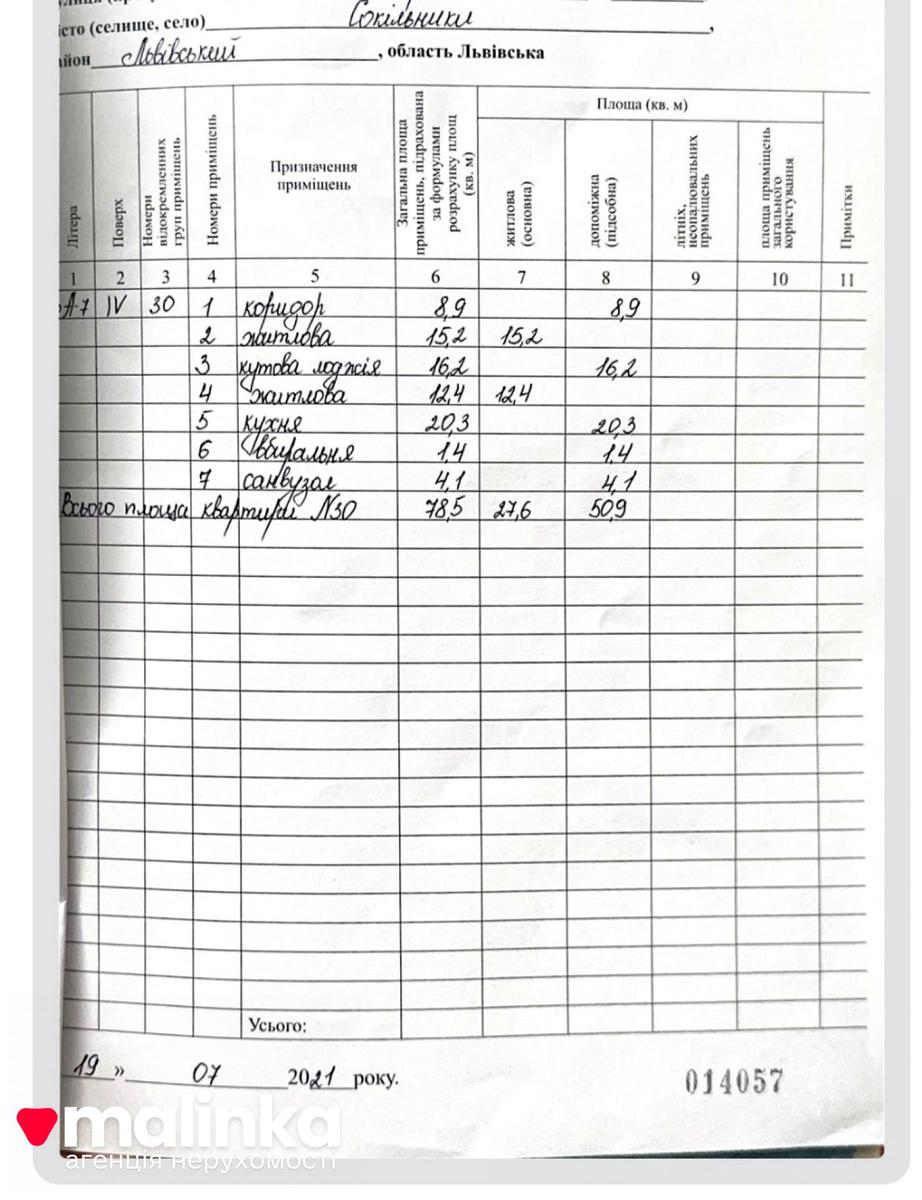 істо (селище, село) Сокільники ,
айон Львівський , область Львівська
Літера
Поверх
Номери відокремленних груп приміщень
Номери приміщень
Призначення приміщень
Загальна площа приміщень, підрахована за формулами розрахунку площ (кв. м)
Площа (кв. м)
житлова (основна)
допоміжна (підсобна)
літніх, неопалювальних приміщень
площа приміщень загального користування
Примітки
1 2 3 4 5 6 7 8 9 10 11
А-7 IV 30 1 коридор 8,9 8,9
2 житлова 15,2 15,2
3 кутова лоджія 16,2 16,2
4 житлова 12,4 12,4
5 кухня 20,3 20,3
6 вбиральня 1,4 1,4
7 санвузол 4,1 4,1
Всього площа квартири N30 78,5 27,6 50,9
Усього:
19 » 07 2021 року.
014057
malinka
агенція нерухомості